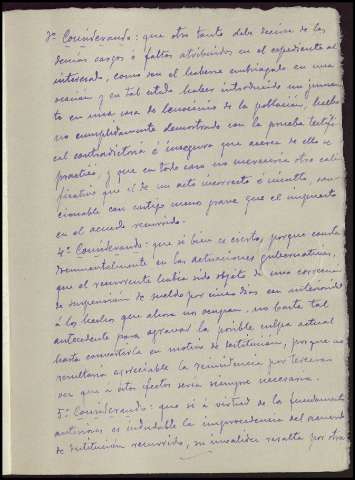 3º Considerando: que otro tanto debe decirse de los
demás cargos ó faltas atribuidos en el expediente al
interesado, como son el haberse embriagado en una
ocasión y en tal estado haber introducido un jumen-
to en una casa de lenocinio de la población, hecho
no cumplidamente demostrado con la prueba testifi-
cal contradictoria é insegura que acerca de ello se
practicó, y que en todo caso no merecería otro cali-
ficativo que el de un acto incorrecto é inculto, san-
cionable con castigo menos grave que el impuesto
en el acuerdo recurrido.
4º Considerando: que si bien es cierto, porque consta
documentalmente en las actuaciones gubernativas,
que el recurrente había sido objeto de una corrección
de suspensión de sueldo por cinco días con anterioridad
á los hechos que ahora nos ocupan, no basta tal
antecedente para agravar la posible culpa actual
hasta convertirla en motivo de destitución, porque no
resultaría apreciable la reincidencia por tercera
vez que á estos efectos sería siempre necesaria.
5º Considerando: que si á virtud de los fundamentos
anteriores es indudable la improcedencia del acuerdo
de destitución recurrido, su invalidez resalta por otra